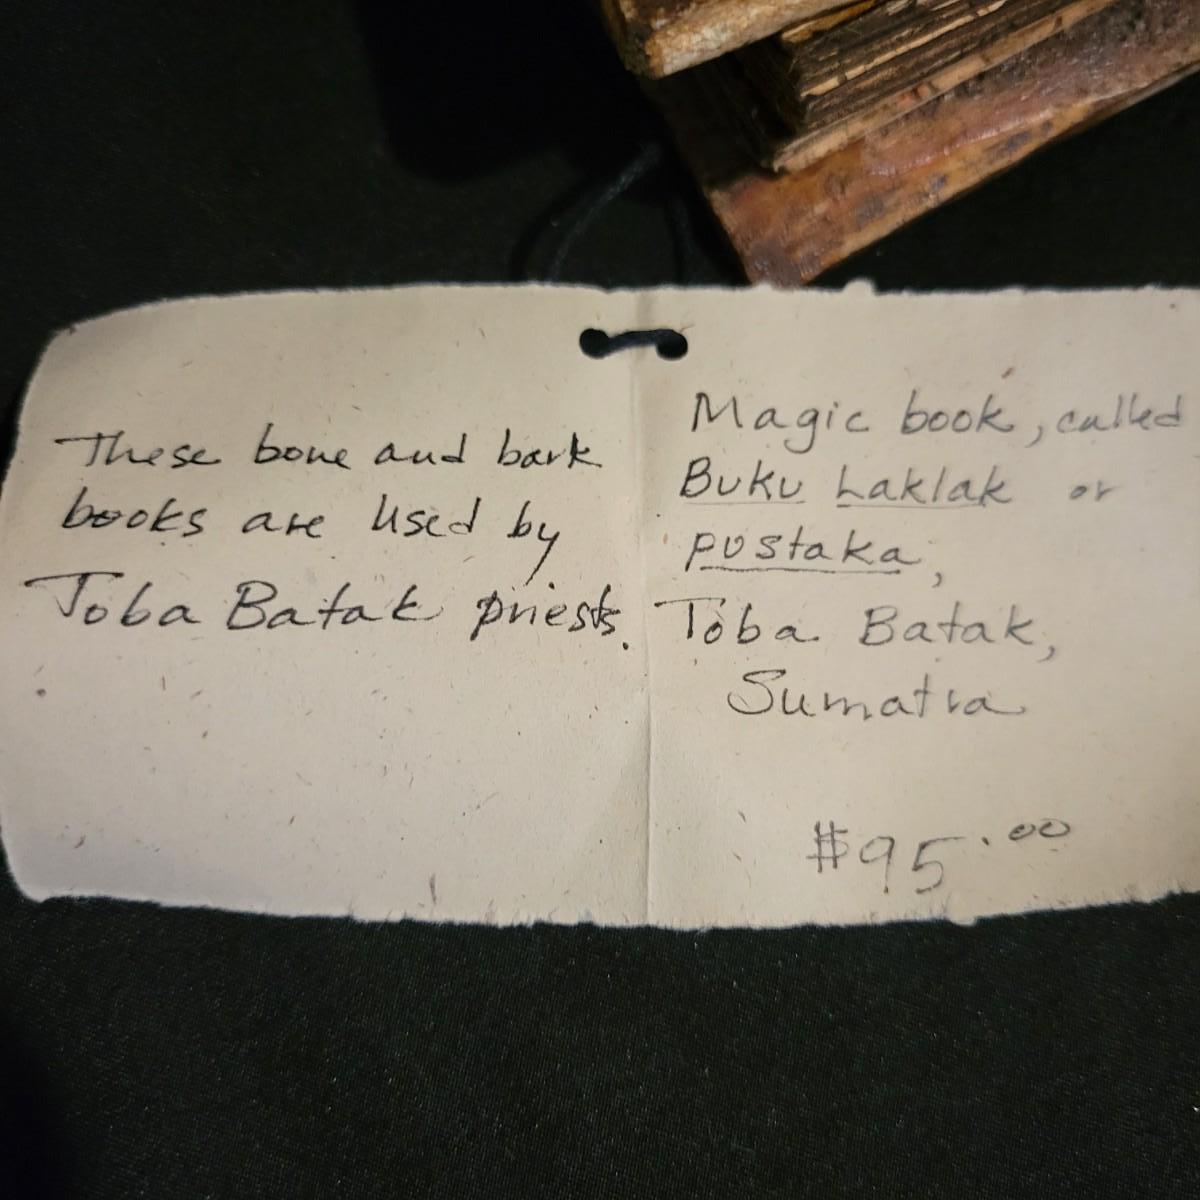 These bone and bark
books are used by
Toba Batak priests.
Magic book, called
Buku Laklak or
pustaka,
Toba Batak,
Sumatra
$95.00